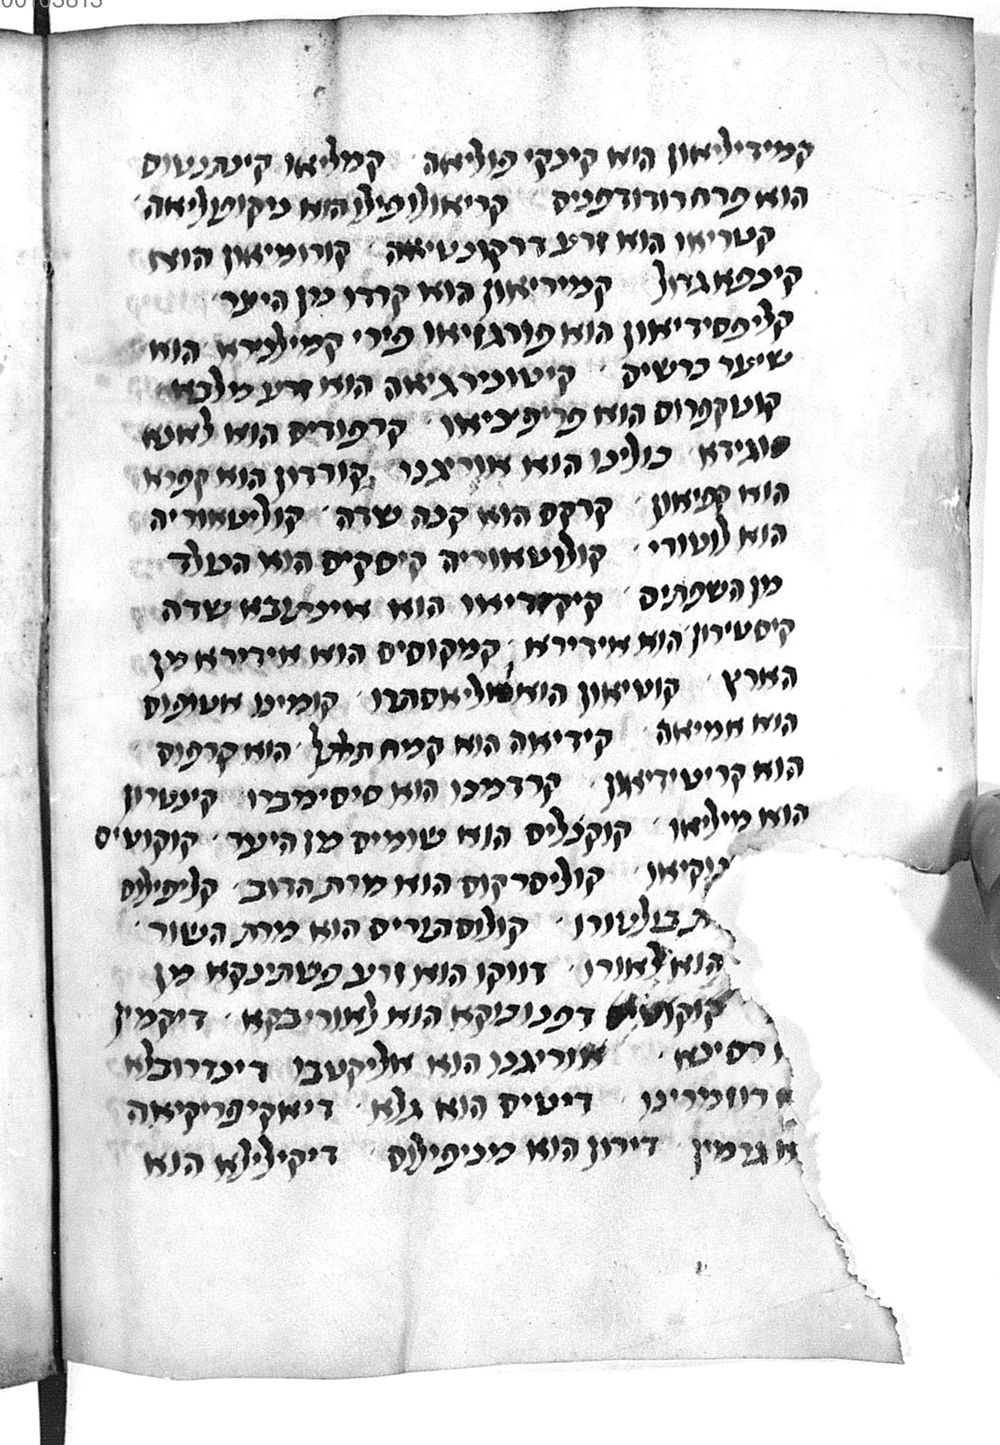 קמידיליאון הוא קינקי פוליאה קמליאו קינתנטוס
הוא פרח רודודפניס קריאולופילו הוא מקופוליאה
קטריאו הוא זרע דרקונטיאה קורומיאון הוא
קיפפא גדול קמיריאון הוא קרדו מן היער
קליפסידיאון הוא פורגזיאו פירי קמילברא הוא
שיער כרשים קיטומירגיאה הוא זרע מלבא
קוטקפרוס הוא פריפיציאו קרפודים הוא לאטא
סוגידא כולינו הוא אוריגנו קורדון הוא קפרא
הוא קפיאון קרקס הוא קנה שדה קוליטאוריה
הוא לוטורי קולוטאוריה קיסקיס הוא הטולד
מן השפתים קיקדריאו הוא אינתובא שדה
קיסטירון הוא אידירא קמקוסיס הוא אידירא מן
הארץ קוטיאון הוא אוליאסתרו קומיט אטופוס
הוא אמיאה קידיאה הוא קמח תלתן הוא קרפוס
הוא קריטידיאון קרדמנו הוא סיסימברו קינטרון
הוא מיליאו קוקבלים הוא שומים מן היער קוקוטיס
נוקיאו קוליסרקוס הוא מרת הדוב קליפילוס
ת בולטורו קולוסתוריס הוא מרת השור
הוא לאורו דווקו הוא זרע פסתינקא מן
קוקוטיס דפנו כוקא הוא לאוריבקא דיקמין
רסינא אוריגנו הוא אליקטבו דינדרובלא
רוזמירינו דיטיס הוא גלא דיאקיפריקיאה
א גרמין דירון הוא מניפילוס דיקילילא הוא